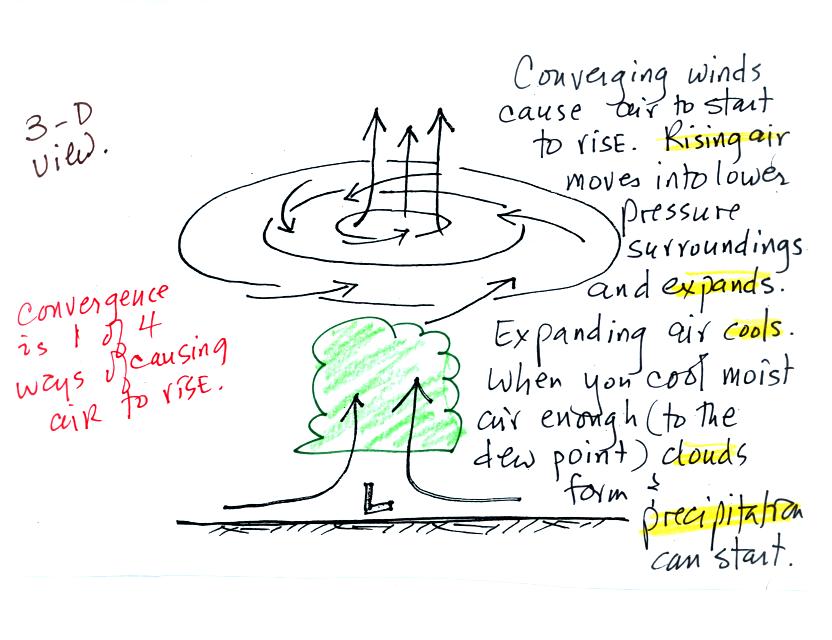 3-D
view.
Converging winds
cause air to start
to rise. Rising air
moves into lower
pressure
surroundings
and expands.
Expanding air cools.
When you cool moist
air enough (to the
dew point) clouds
form &
precipitation
can start.
Convergence
is 1 of 4
ways of causing
air to rise.
L